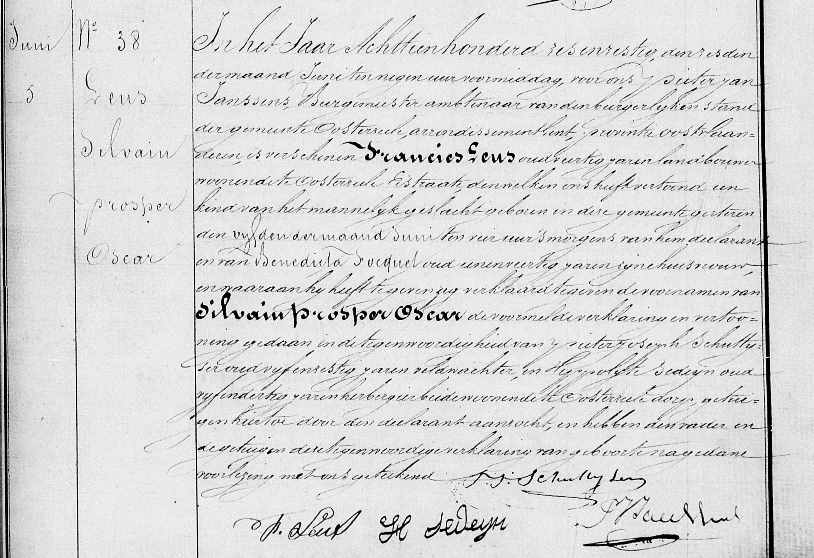 Juni
5
N° 38
Leus
Silvain
prosper
Oscar
In het Jaar Achttienhonderd zes en zestig, den zesden
der maand Juni ten negen uur voormiddag, voor ons pieter jan
Janssens, Burgemeester ambtenaar van den burgerlyken stand
der gemeente Oosterzeele, arrondissement Gent, provintie oostvlaan-
deren is verschenen Francies Leus oud veertig jaren landbouwer
woonende te Oosterzeele straate, den welken ons heeft vertoond een
kind van het mannelyk geslacht geboren in deze gemeente gisteren
den vyfden der maand Juni ten vier uur 's morgens van hem declarant
en van Benedicta Focquet oud eenenveertig jaren zyne huisvrouw,
en waaraan hy heeft te geven zegt verklaard te geven de voornamen van
Silvain prosper Oscar de voormelde verklaring en vertoo-
ning gedaan in de tegenwoordigheid van pieter Joseph Schutty-
ser oud vyfenzestig jaren veldwachter, en Hyppolyte Sedeyn oud
vyfendertig jaren herbergier beide woonende te Oosterzeele dorp, getui-
gen hiertoe door den declarant aanzocht, en hebben den vader en
de getuigen deze tegenwoordige verklaring van geboorte na gedane
voorlezing met ons geteekend
p. j. Schuttyser
F. Leus H Sedeyn